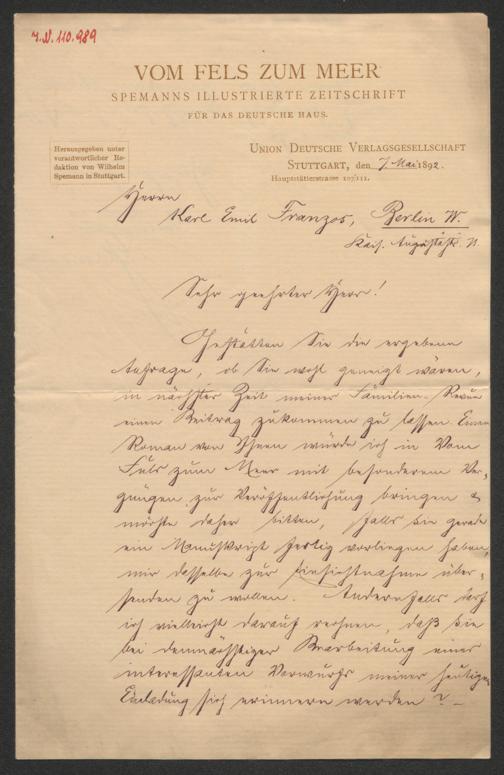 I.N. 110.989
VOM FELS ZUM MEER
SPEMANNS ILLUSTRIERTE ZEITSCHRIFT
FÜR DAS DEUTSCHE HAUS.
Herausgegeben unter
verantwortlicher Re-
daktion von Wilhelm
Spemann in Stuttgart.
UNION DEUTSCHE VERLAGSGESELLSCHAFT
STUTTGART, den 7. Mai 1892.
Hauptstätterstrasse 107/111.
Herrn
Karl Emil Franzos, Berlin W.
Kais. Augustastr.
Sehr geehrter Herr!
Gestatten Sie die ergebene
Anfrage, ob Sie wohl geneigt wären,
in nächster Zeit meiner Familien-Revue
einen Beitrag zukommen zu lassen. Einen
Roman von Ihnen würde ich in Vom
Fels zum Meer mit besonderem Ver-
gnügen zur Veröffentlichung bringen &
möchte daher bitten, falls Sie gerade
ein Manuskript fertig vorliegen haben,
mir dasselbe zur Einsichtnahme über-
senden zu wollen. Andernfalls darf
ich vielleicht darauf rechnen, daß Sie
bei demnächstiger Bearbeitung eines
interessanten Vorwurfs meiner heutigen
Einladung sich erinnern werden? –